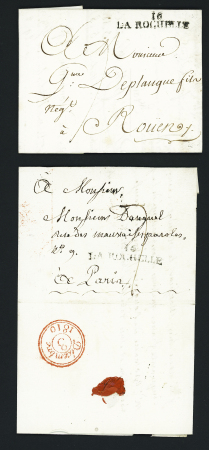 16
LA ROCHELLE
A Monsieur
Gme Deplanque fils
Negt
à Rouen
A Monsieur,
Monsieur
rue des mauvaises paroles,
No. 9.
16
LA ROCHELLE
à Paris
1810
3